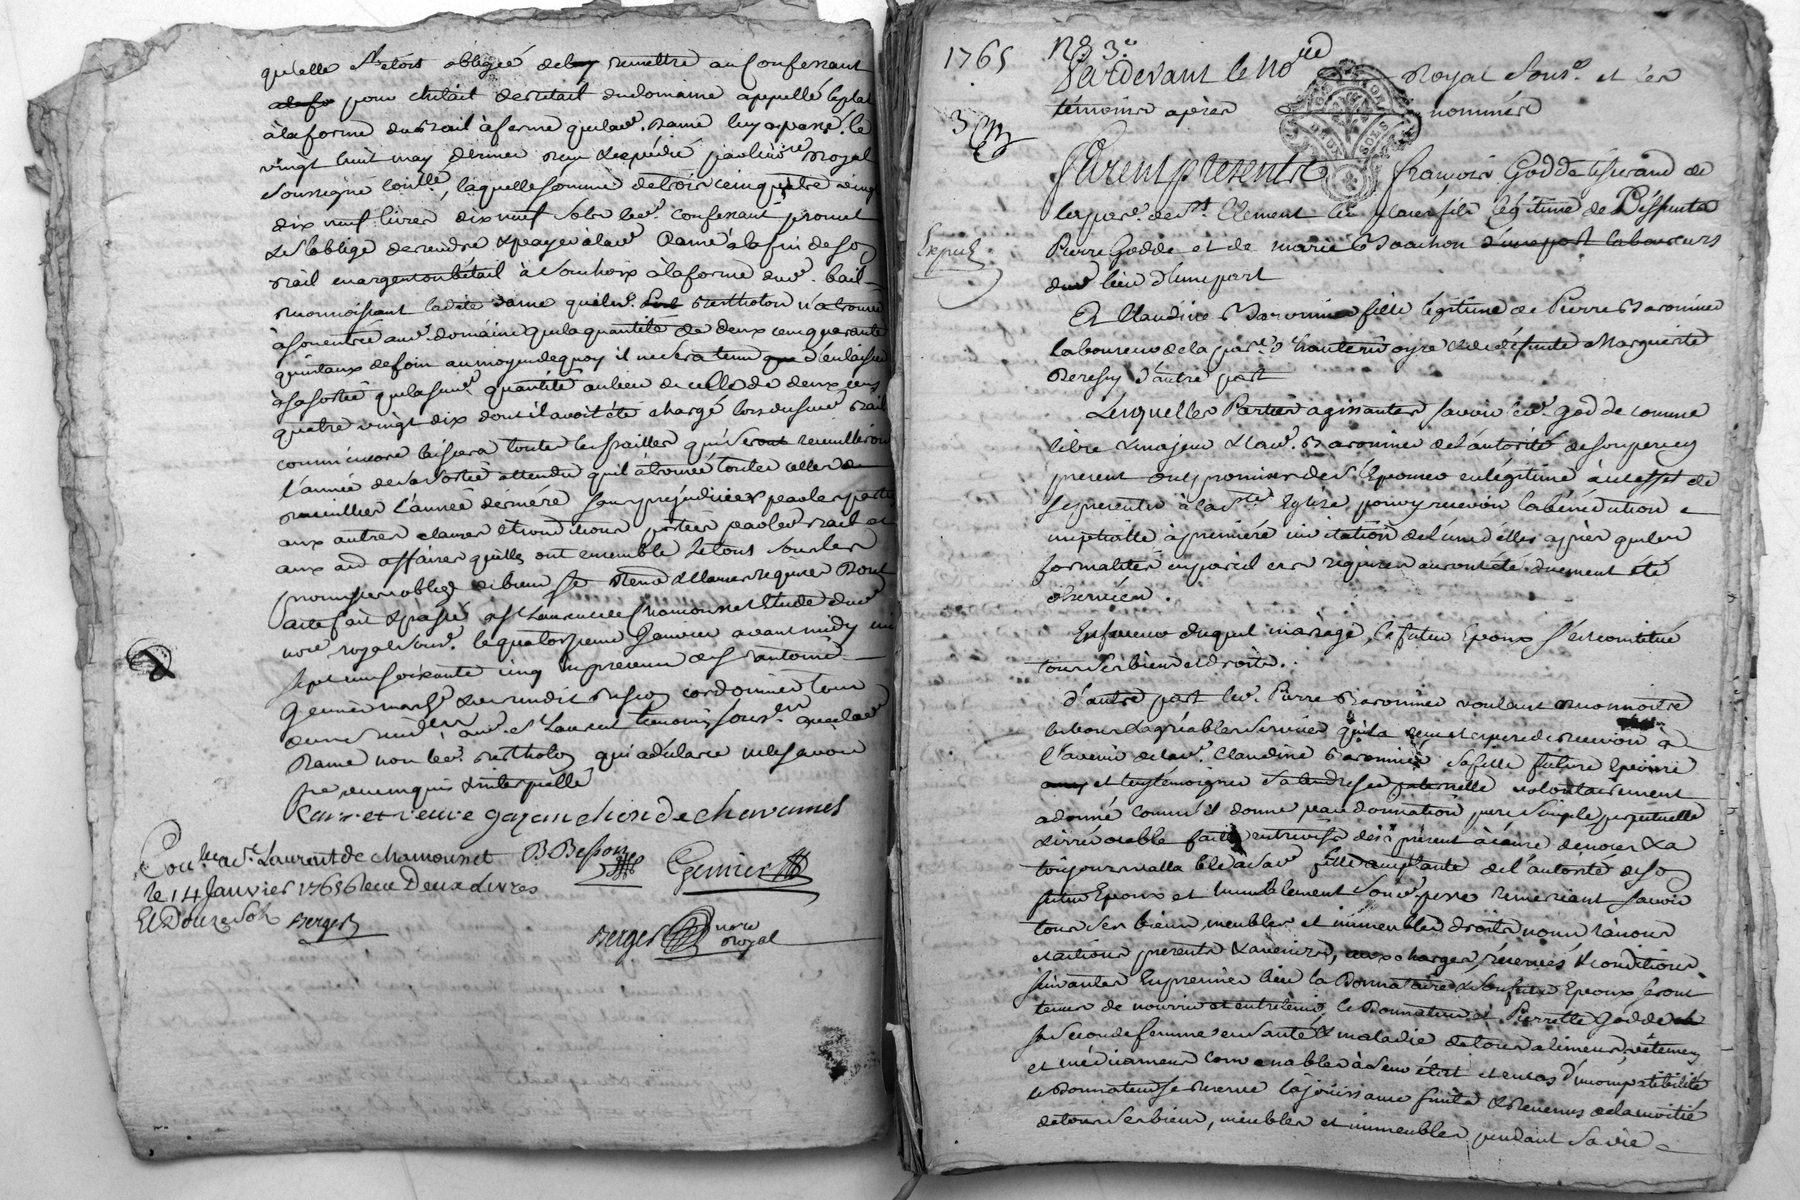 qu'elle s'etoit obligée de luy remettre au Confessant
pour cheptail du domaine appellé
à la forme du Bail à ferme que lad. Dame luy a passé le
vingt huit may dernier Royal
soussigné laquelle somme de trois cent quatre vingt
dix neuf livres, dix neuf sols led. confessant promet
& s'oblige de rendre & payer à lad. Dame à la fin de son
Bail en argent ou bétail à son choix à la forme dud. bail
Reconnoissant ladite dame que led. Bertholon n'a trouvé
à son entrée aud. domaine que la quantité de deux cent quarante
quintaux de foin au moyen de quoy il ne sera tenu d'en laisser
à sa sortie que la quantité au lieu de celle de deux cens
quatre vingt dix dont il avoit été chargé lors dud. Bail
comm'encore laissera toutes les pailles qui seront recueillies en
l'année de sa sortie attendu qu'il a trouvé toutes celles
recueillies l'année derniere sans prejudicier par les parties
aux autres clauses et conditions portées par led. Bail et
aux affaires qu'elles ont ensemble
Dont
acte fait & passé à St Laurent de Chamousset Etude dud.
nore royal sous. le quatorzieme Janvier avant midy mil
sept cent soixante cinq en presence de Sr antoine
Genier march. cordonnier tous
aud. St Laurent temoins sous. avec lad.
Dame non led. Bertholon qui a declaré ne le savoir
de ce enquis & interpellé
veuve gazanchon de chavannes
Con.lle a St Laurent de chamousset B Besson Genier
le 14 Janvier 1765 Recu Deux Livres
Et Douze Sols Berger
Berger nore
Royal
1765 No 3.
Pardevant le Nore Royal Sous. et les
témoins après nommés
3
Furent presents François Godde tisserand de
la par. de St Clement les places fils légitime de Deffunts
Expedié
Pierre Godde et de marie Brachon laboureurs
dud. lieu d'une part
Et Claudine Baronnier fille légitime de Pierre Baronnier
laboureur de la par. d'hauterivoyre & de défunte Marguerite
d'autre part
Lesquelles Parties agissantes savoir led. Godde comme
libre & majeur & lad. Baronnier de l'autorité de son pere cy
present ont promis de s'Epouser en légitime à cet effet de
se presenter à la Ste Eglise pour y recevoir la bénédiction
nuptialle à premiere invitation de l'une d'elles après que les
formalités en pareil cas requises auront été duement été
observées.
En faveur duquel mariage, le futur Epoux s'est constitué
tous ses biens et droits.
d'autre part led. Pierre Baronnier voulant reconnoitre
les bons & agréables services qu'il a reçu et espere de recevoir à
l'avenir de lad. Claudine Baronnier sa fille future Epouse
et luy témoigner sa tendresse paternelle volontairement
a donné comm'il donne par donnation pure simple perpetuelle
& irrévocable faite entrevifs dès à présent à cause de noces & a
toujours vallable à lad. fille acceptante de l'autorité de son
futur Epoux et humblement sond. pere remerciant savoir
tous ses biens, meubles et immeubles droits noms raisons
et actions presents & avenirs, aux charges, réserves & conditions
suivantes En premier lieu la Donnataire & son futur Epoux seront
tenus de nourrir et entretenir le Donnateur et Pierrette Godde
sa seconde femme en santé & maladie de tous alimens, vêtemens
et médicamens convenables à leur état et en cas d'incompatibilité
le Donnateur se reserve la jouissance fruits & Revenus de la moitié
de tous ses biens, meubles et immeubles pendant sa vie